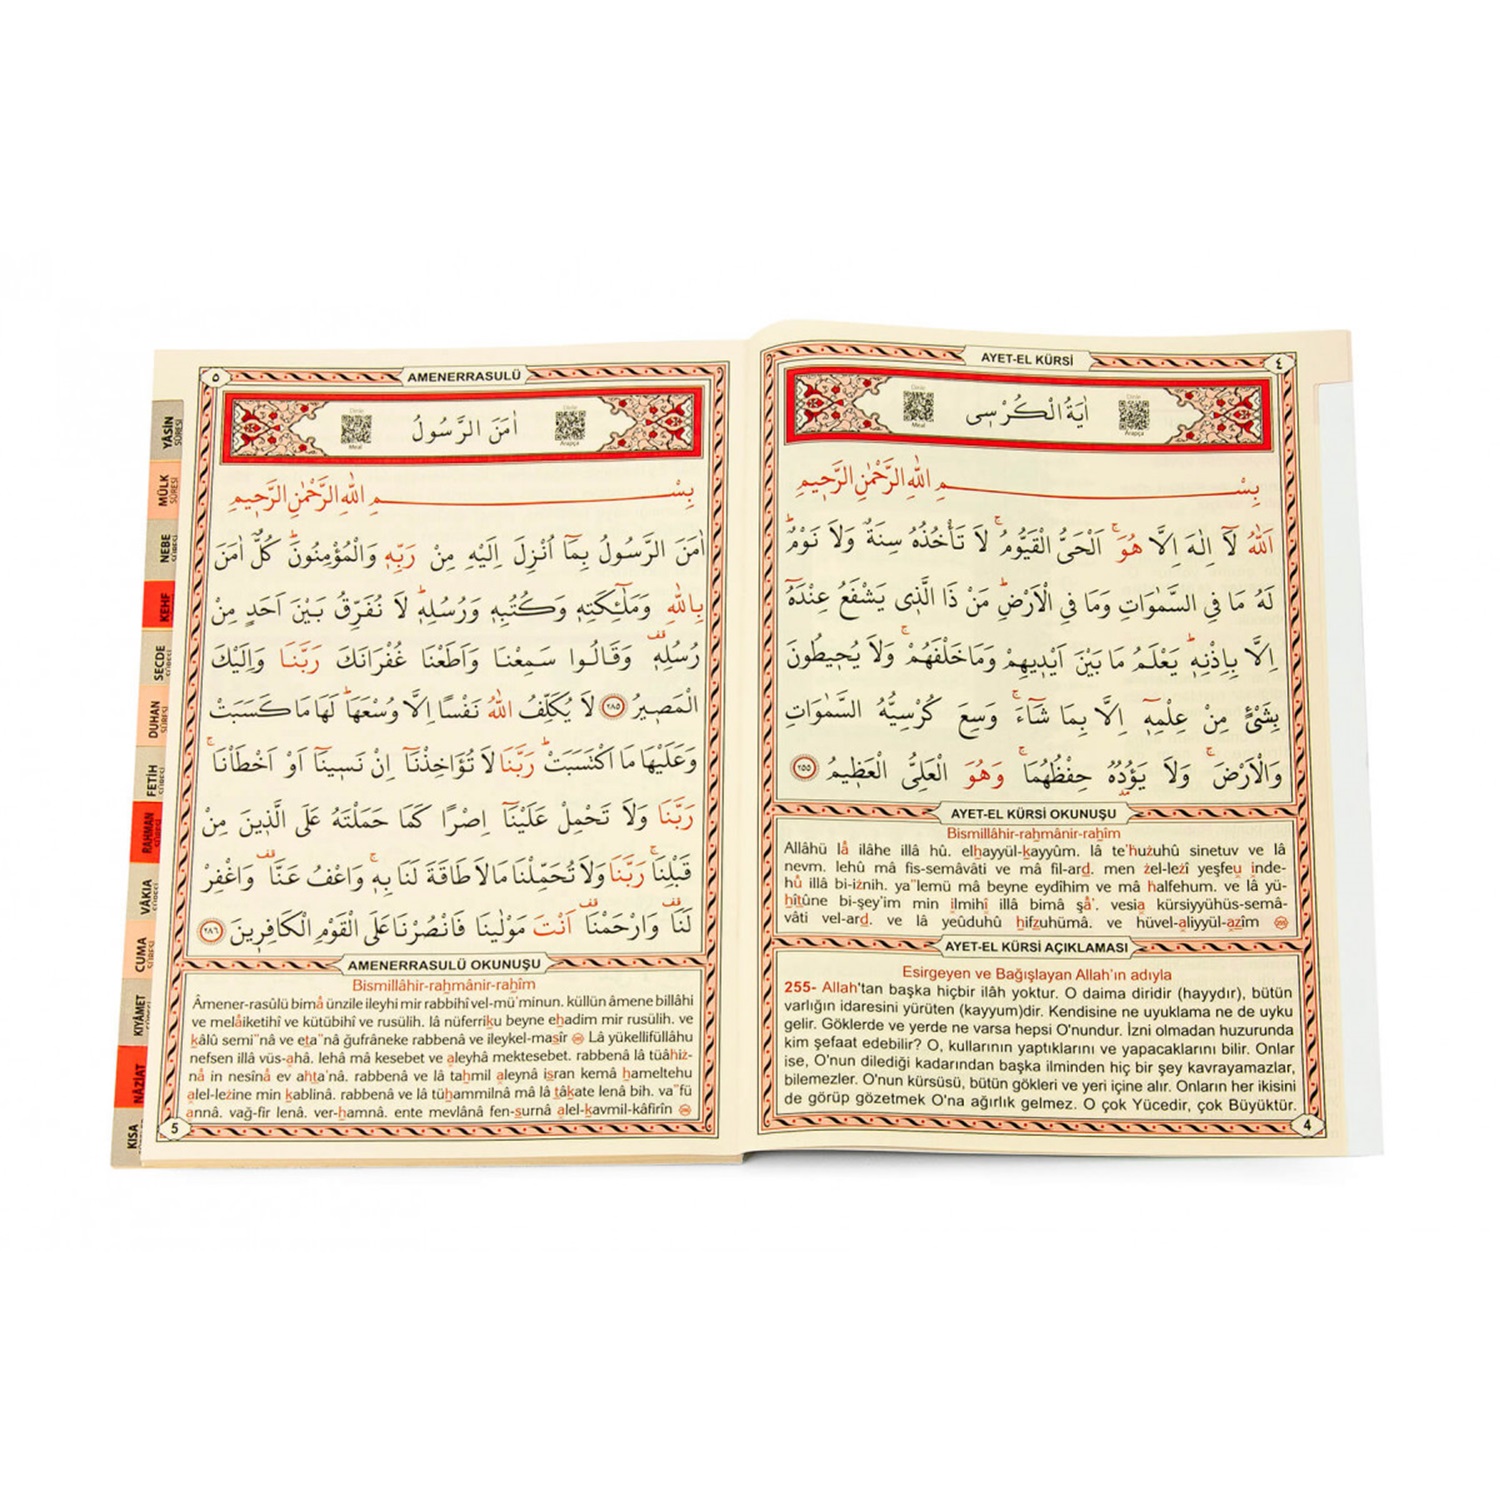 AYET-EL KÜRSİ
٤
اٰيَةُ الْكُرْسِيّ
Dinle
Meal
Dinle
Arapça
بِسْمِ اللّٰهِ الرَّحْمٰنِ الرَّحٖيمِ
اَللّٰهُ لَٓا اِلٰهَ اِلَّا هُوَۚ اَلْحَيُّ الْقَيُّومُۚ لَا تَأْخُذُهُ سِنَةٌ وَلَا نَوْمٌؕ
لَهُ مَا فِي السَّمٰوَاتِ وَمَا فِي الْاَرْضِؕ مَنْ ذَا الَّذٖي يَشْفَعُ عِنْدَهُٓ
اِلَّا بِاِذْنِهٖؕ يَعْلَمُ مَا بَيْنَ اَيْدٖيهِمْ وَمَا خَلْفَهُمْۚ وَلَا يُحٖيطُونَ
بِشَيْءٍ مِنْ عِلْمِهٖٓ اِلَّا بِمَا شَٓاءَۚ وَسِعَ كُرْسِيُّهُ السَّمٰوَاتِ
وَالْاَرْضَۚ وَلَا يَؤُ۫دُهُ حِفْظُهُمَاۚ وَهُوَ الْعَلِيُّ الْعَظٖيمُ ﴿٢٥٥﴾
AYET-EL KÜRSİ OKUNUŞU
Bismillâhir-raḥmânir-raḥîm
Allâhü lâ ilâhe illâ hû. elḥayyül-ḳayyûm. lâ te'ḣuẕuhû sinetuv ve lâ
nevm. lehû mâ fis-semâvâti ve mâ fil-arḍ. men ẕel-leẕî yeşfeu inde-
hû illâ bi-iẕnih. ya"lemü mâ beyne eydîhim ve mâ ḣalfehum. ve lâ yü-
ḥîṭûne bi-şey'im min ilmihî illâ bimâ şâ'. vesia kürsiyyühüs-semâ-
vâti vel-arḍ. ve lâ yeûduhû ḥifẓuhümâ. ve hüvel-aliyyül-aẓîm 255
AYET-EL KÜRSİ AÇIKLAMASI
Esirgeyen ve Bağışlayan Allah'ın adıyla
255- Allah'tan başka hiçbir ilâh yoktur. O daima diridir (hayydır), bütün
varlığın idaresini yürüten (kayyum)dir. Kendisine ne uyuklama ne de uyku
gelir. Göklerde ve yerde ne varsa hepsi O'nundur. İzni olmadan huzurunda
kim şefaat edebilir? O, kullarının yaptıklarını ve yapacaklarını bilir. Onlar
ise, O'nun dilediği kadarından başka ilminden hiç bir şey kavrayamazlar,
bilemezler. O'nun kürsüsü, bütün gökleri ve yeri içine alır. Onların her ikisini
de görüp gözetmek O'na ağırlık gelmez. O çok Yücedir, çok Büyüktür.
4
٥
AMENERRASULÜ
اٰمَنَ الرَّسُولُ
Dinle
Meal
Dinle
Arapça
بِسْمِ اللّٰهِ الرَّحْمٰنِ الرَّحٖيمِ
اٰمَنَ الرَّسُولُ بِمَٓا اُنْزِلَ اِلَيْهِ مِنْ رَبِّهٖ وَالْمُؤْمِنُونَؕ كُلٌّ اٰمَنَ
بِاللّٰهِ وَمَلٰٓئِكَتِهٖ وَكُتُبِهٖ وَرُسُلِهٖؕ لَا نُفَرِّقُ بَيْنَ اَحَدٍ مِنْ
رُسُلِهٖ وَقَالُوا سَمِعْنَا وَاَطَعْنَا غُفْرَانَكَ رَبَّنَا وَاِلَيْكَ
الْمَصٖيرُ ﴿٢٨٥﴾ لَا يُكَلِّفُ اللّٰهُ نَفْسًا اِلَّا وُسْعَهَاؕ لَهَا مَا كَسَبَتْ
وَعَلَيْهَا مَا اكْتَسَبَتْؕ رَبَّنَا لَا تُؤَاخِذْنَٓا اِنْ نَسٖينَٓا اَوْ اَخْطَأْنَاۚ
رَبَّنَا وَلَا تَحْمِلْ عَلَيْنَٓا اِصْرًا كَمَا حَمَلْتَهُ عَلَى الَّذٖينَ مِنْ
قَبْلِنَاۚ رَبَّنَا وَلَا تُحَمِّلْنَا مَا لَا طَاقَةَ لَنَا بِهٖۚ وَاعْفُ عَنَّا وَاغْفِرْ
لَنَا وَارْحَمْنَا اَنْتَ مَوْلٰينَا فَانْصُرْنَا عَلَى الْقَوْمِ الْكَافِرٖينَ ﴿٢٨٦﴾
AMENERRASULÜ OKUNUŞU
Bismillâhir-raḥmânir-raḥîm
Âmener-rasûlü bimâ ünzile ileyhi mir rabbihî vel-mü'minun. küllün âmene billâhi
ve melâiketihî ve kütübihî ve rusülih. lâ nüferriḳu beyne eḥadim mir rusülih. ve
ḳâlû semi"nâ ve eṭa"nâ ğufrâneke rabbenâ ve ileykel-maṣîr 285 Lâ yükellifüllâhu
nefsen illâ vüs-ahâ. lehâ mâ kesebet ve aleyhâ mektesebet. rabbenâ lâ tüâhiẕ-
nâ in nesînâ ev aḣṭa'nâ. rabbenâ ve lâ taḥmil aleynâ iṣran kemâ ḥameltehu
alel-leẕine min ḳablinâ. rabbenâ ve lâ tüḥammilnâ mâ lâ ṭâḳate lenâ bih. va"fü
annâ. vağ-fir lenâ. ver-ḥamnâ. ente mevlânâ fen-ṣurnâ alel-ḳavmil-kâfirîn 286
5
YÂSİN
SÛRESİ
MÜLK
SÛRESİ
NEBE
SÛRESİ
KEHF
SECDE
SÛRESİ
DUHAN
SÛRESİ
FETİH
SÛRESİ
RAHMAN
SÛRESİ
VÂKIA
SÛRESİ
CUMA
SÛRESİ
KIYÂMET
SÛRESİ
NÂZİAT
KISA